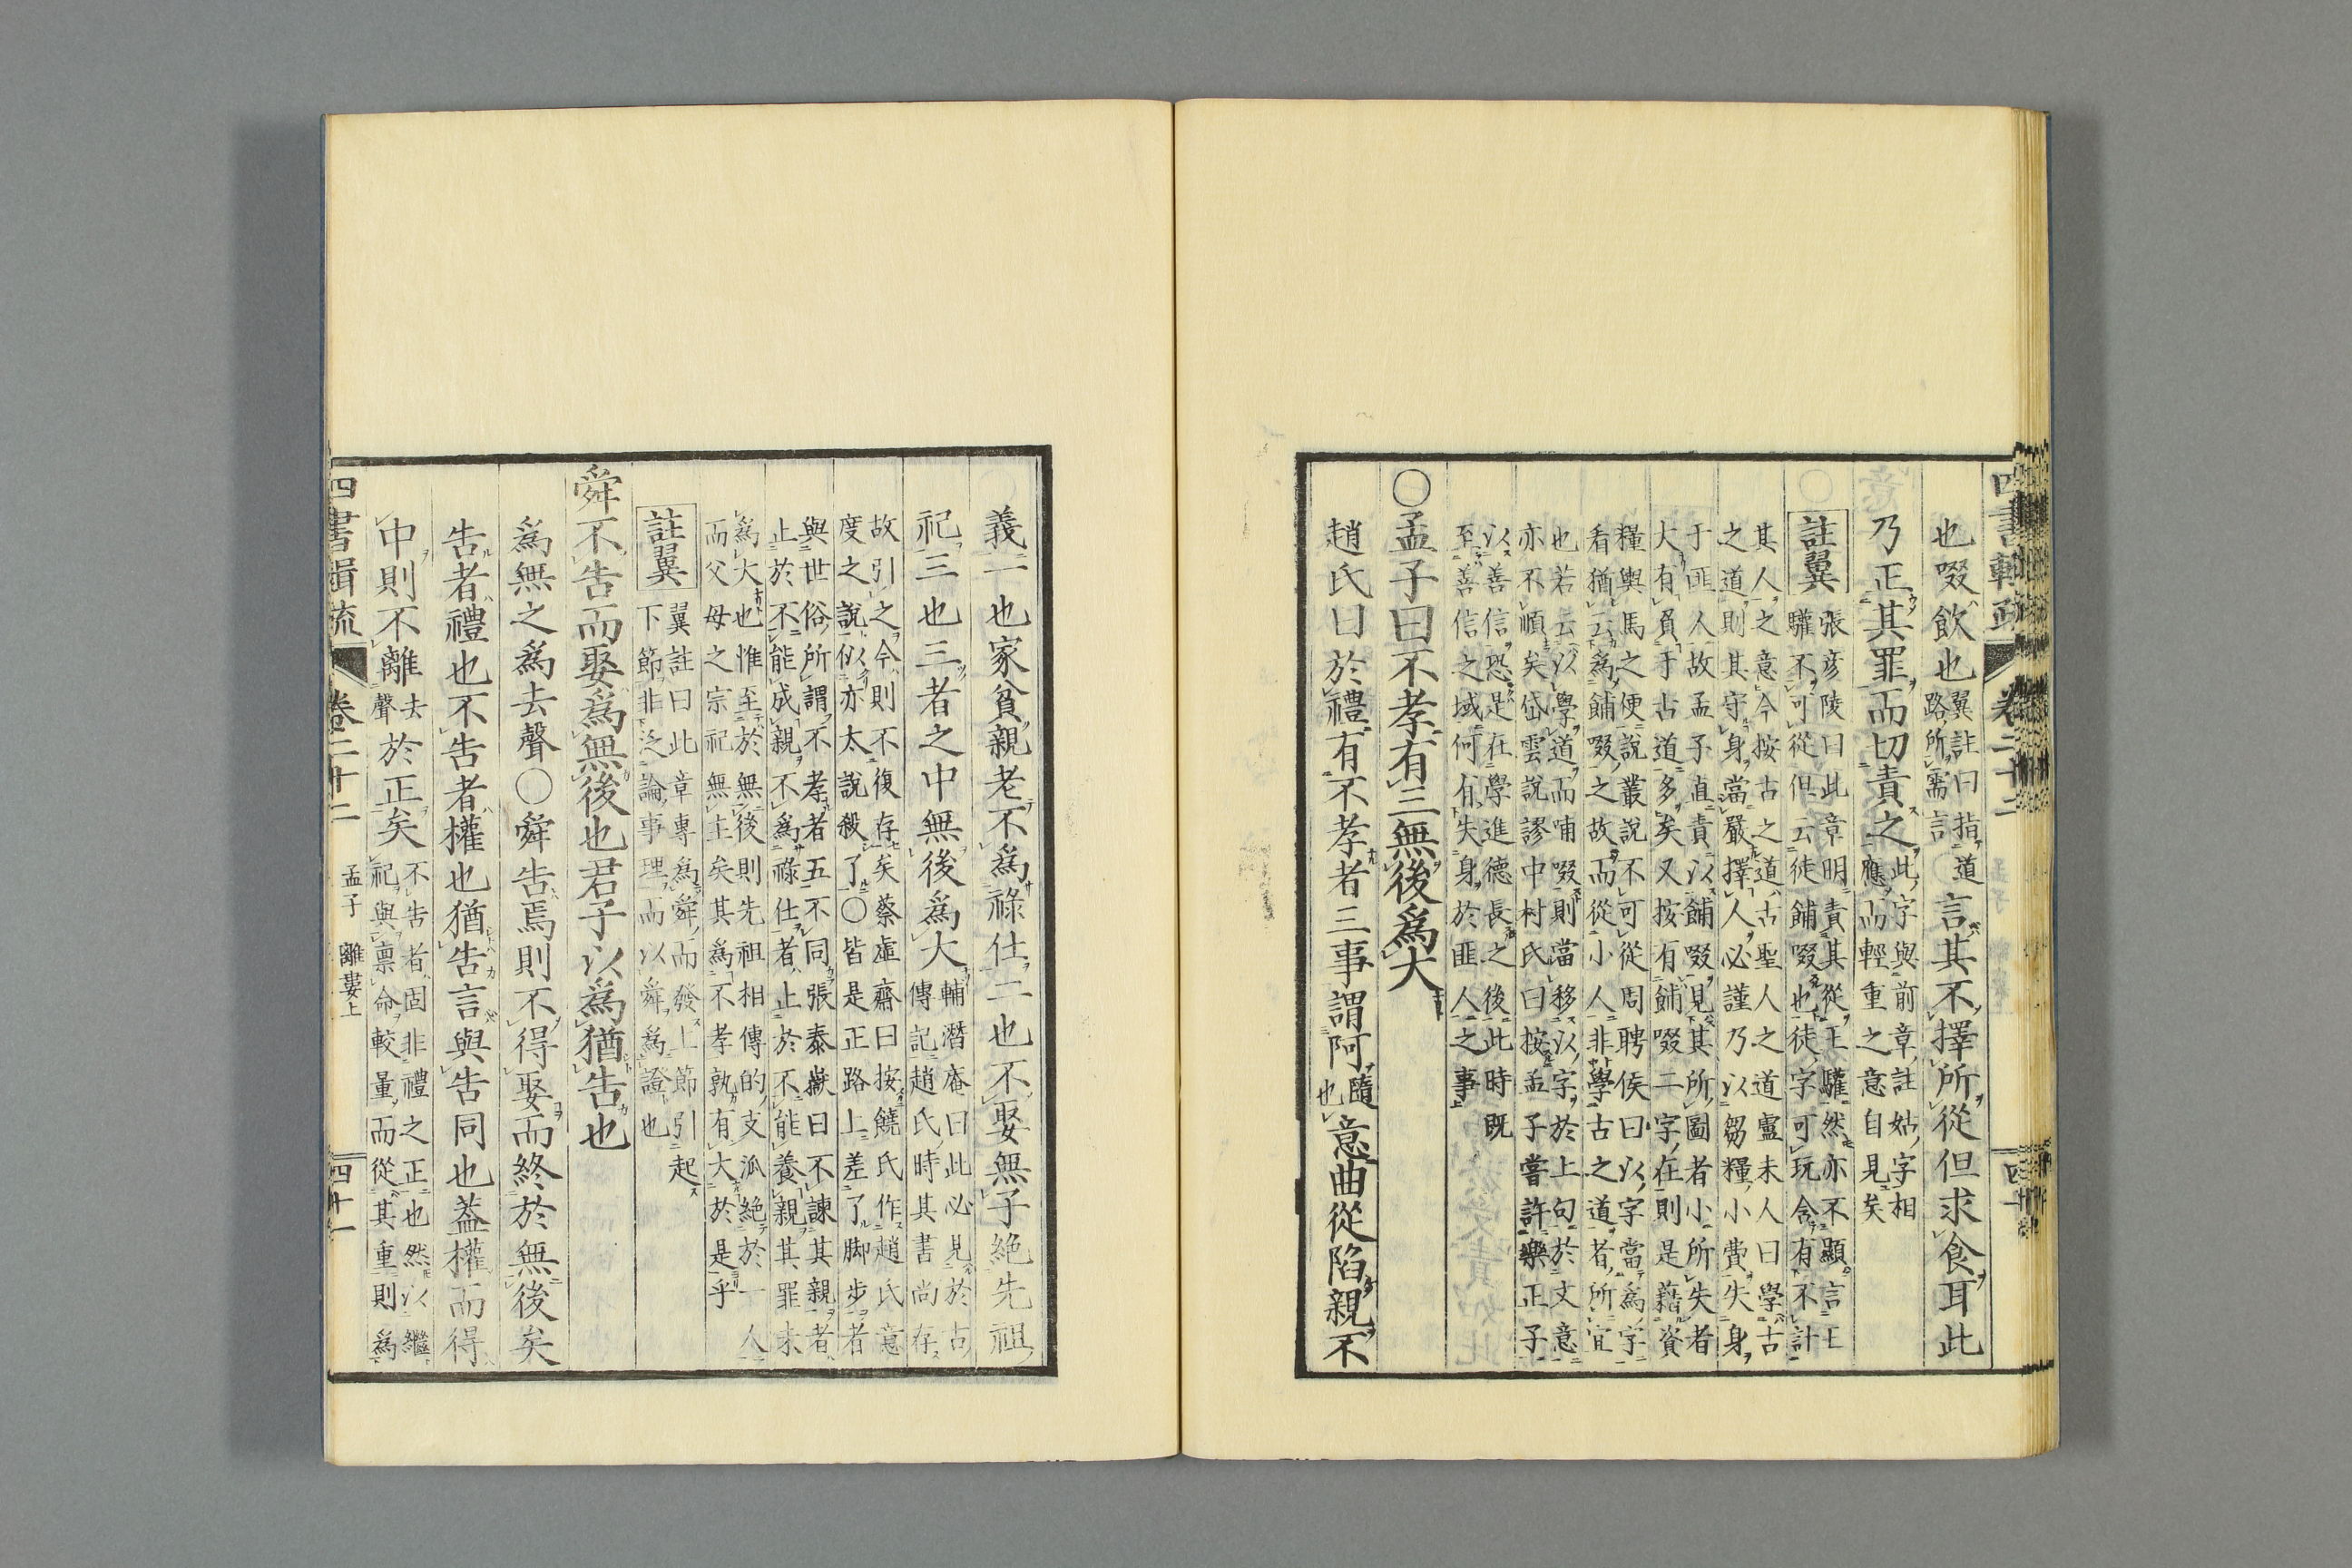 四書輯疏 卷二十二 四十
也啜飲也翼註曰指道路所需言言其不擇所從但求食耳此
乃正其罪而切責之此字與前章註姑字相應而輕重之意自見矣
註翼 張彦陵曰此章明責其從王驩然亦不顯言王
驩不可從但云徒餔啜也徒字可玩含有不計
其人之意今按古之道古聖人之道盧未人曰學古
之道則其守身當嚴擇人必謹乃以芻糧小費失身
于匪人故孟子直責以餔啜見其所圖者小所失者
大有負于古道多矣又按有餔啜二字在則是藉資
糧輿馬之便說叢說不可從周聘侯曰以字當為字
看猶云為餔啜之故而從小人非學古之道者所宜
也若云以學道而哺啜則當移以字於上句於文意
亦不順矣岱雲說謬中村氏曰按孟子嘗許樂正子
以善信恐是在學進德長之後此時既
至善信之域何有失身於匪人之事
〇孟子曰不孝有三無後為大
趙氏曰於禮有不孝者三事謂阿隨也意曲從陷親不
義一也家貧親老不為祿仕二也不娶無子絕先祖
祀三也三者之中無後為大輔潛庵曰此必見於古傳記趙氏時其書尚存
故引之今則不復存矣蔡虛齋曰按饒氏作趙氏意
度之說似亦太說殺了〇皆是正路上差了脚步者
與世俗所謂不孝者五不同張泰嶽曰不諫其親者
止於不能成親不為祿仕者止於不能養親其罪未
為大也惟至於無後則先祖相傳的支派絕於一人
而父母之宗祀無主矣其為不孝孰有大於是乎
註翼 翼註曰此章專為舜而發上節引起
下節非泛論事理而以舜為證也
舜不告而娶為無後也君子以為猶告也
為無之為去聲〇舜告焉則不得娶而終於無後矣
告者禮也不告者權也猶告言與告同也蓋權而得
中則不離去聲於正矣不告者固非禮之正也然以繼祀與禀命較量而從其重則為
四書輯疏 卷二十二 孟子 離婁上 四十一